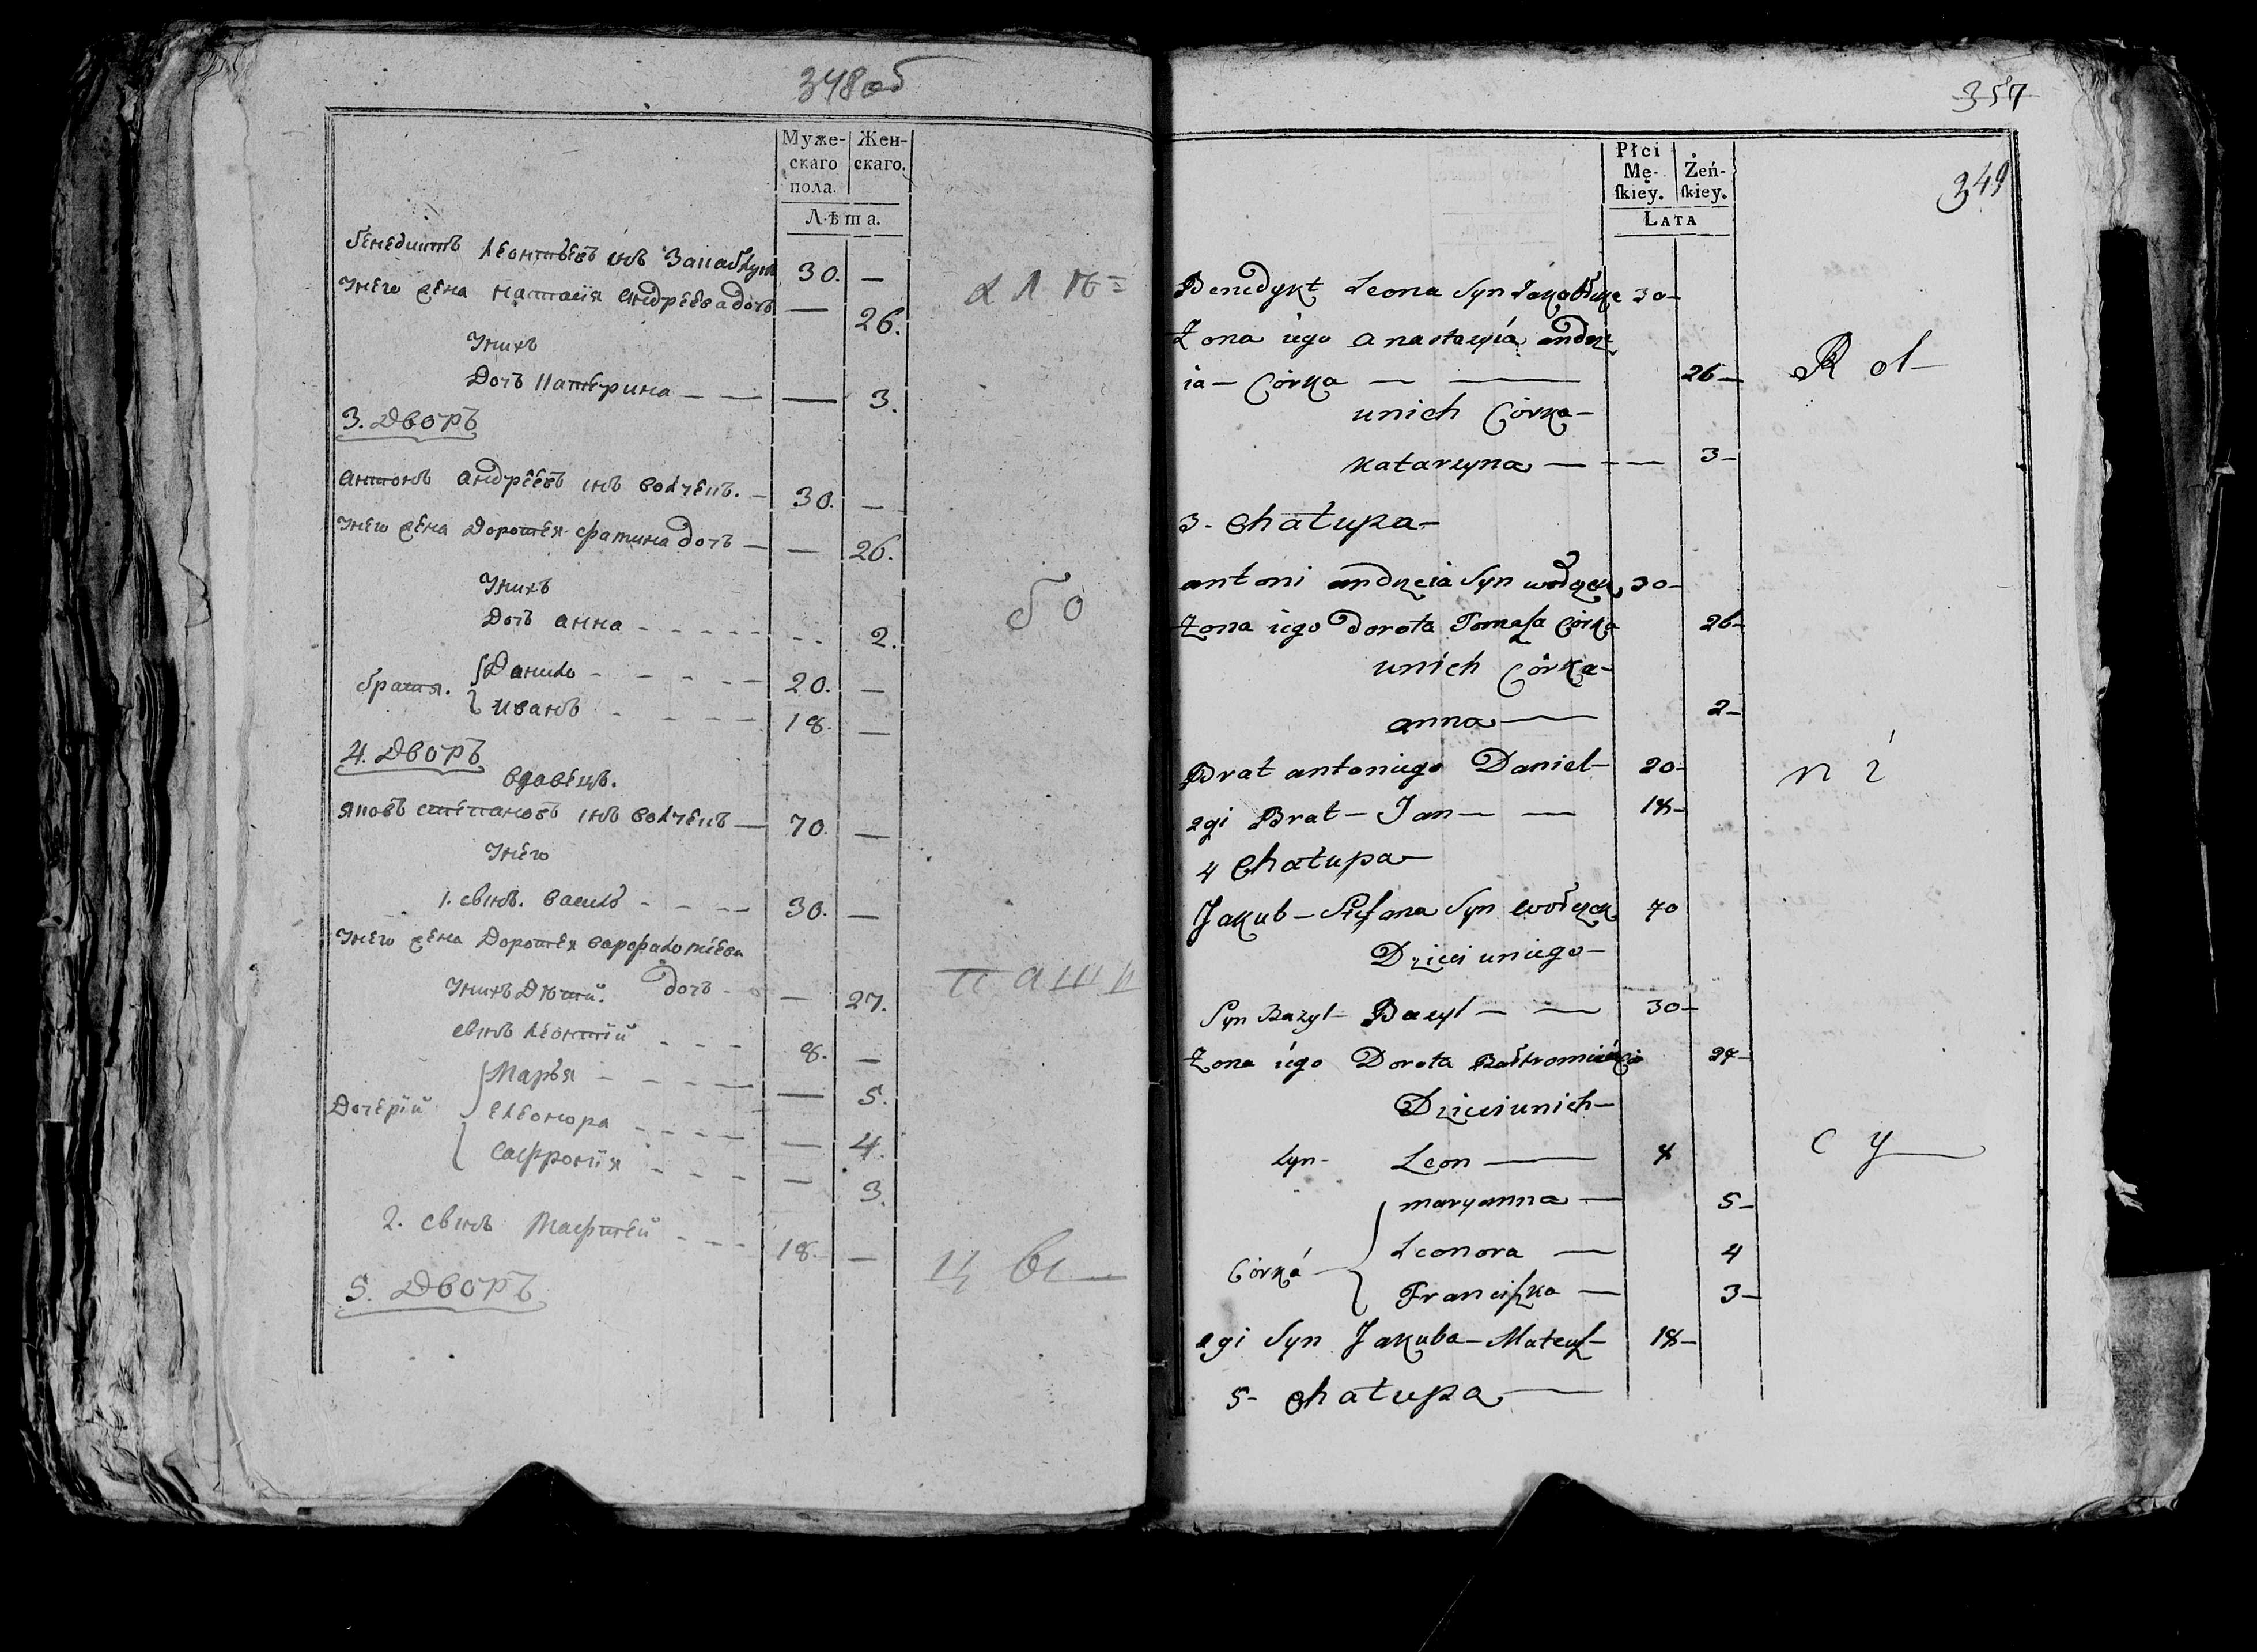 348 об
Муже-
скаго
пола.
Жен-
скаго.
Лѣта.
Бенедиктъ Леонтьевъ снъ 30. —
Унего жена Настасія Андреева дочь — 26.
Унихъ
Дочь Катерина — — — 3.
3. Дворъ
Антонъ Андреевъ снъ Волчекъ. — 30. —
Унего жена Доротея Фомина дочь — — 26.
Унихъ
Дочь Анна - - - - - - - 2.
братя. Данило - - - - - 20. —
Иванъ - - - - 18. —
4. Дворъ
вдовецъ.
Яковъ Степановъ снъ Волчекъ — 70. —
Унего
1. сынъ. Василь - - - - 30. —
Унего жена Доротея Варфоломѣева
дочь - - — 27.
Унихъ Дѣти.
сынъ Леонтій - - - 8. —
Дочерій Марья - - - - — — 5.
Елеонора - - - - — 4.
Сафронія - - - — 3.
2. сынъ Матфей - - - 18. —
5. Дворъ
бо
паши
цы —
357
349
Płci
Mę-
ſkiey.
Żeń-
ſkiey.
LATA
Benedykt Leona Syn 30 —
Zona iego Anastazyia Andrze
ia — Córka — — 26 —
unich Córka —
Katarzyna — — — 3 —
3 - Chałupa —
Antoni Andrzeia Syn Wołczek 30 —
Zona iego Dorota Tomaſza Córka 26 —
unich Córka —
Anna — 2 —
Brat Antoniego Daniel — 20 —
2gi Brat — Jan — — 18 —
4 Chałupa —
Jakub — Stefana Syn Wołczek 70
Dzieci uniego —
Syn Bazyl — Bazyl — — 30 —
Zona iego Dorota 27 —
Dzieci unich —
Syn - Leon — 8
Maryanna — 5 —
Córka — Leonora — 4
Franciſzka — 3 —
2gi Syn Jakuba — Mateuſz — 18 —
5 - Chałupa —
Rol —
ni
cy —